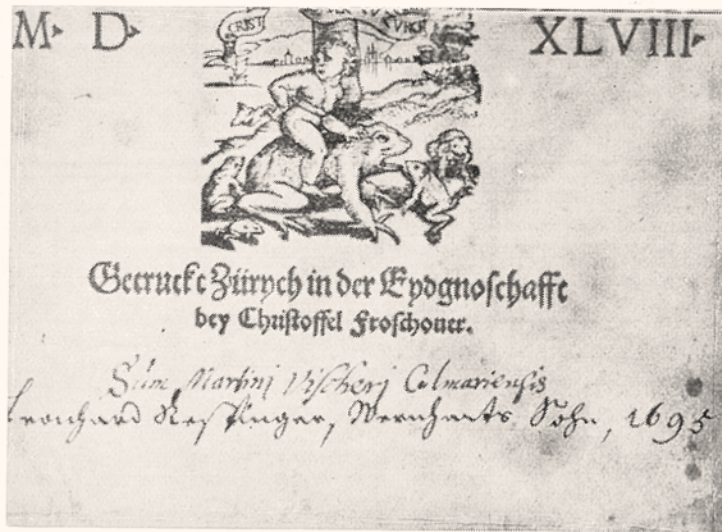 M· D·
XLVIII·
CRIST
Getruckt Zürych in der Eydgnoschafft
bey Christoffel Froschouer.
Sum Martinj Vischerj Colmariensis
Leonhard Respinger, Wernharts Sohn, 1695